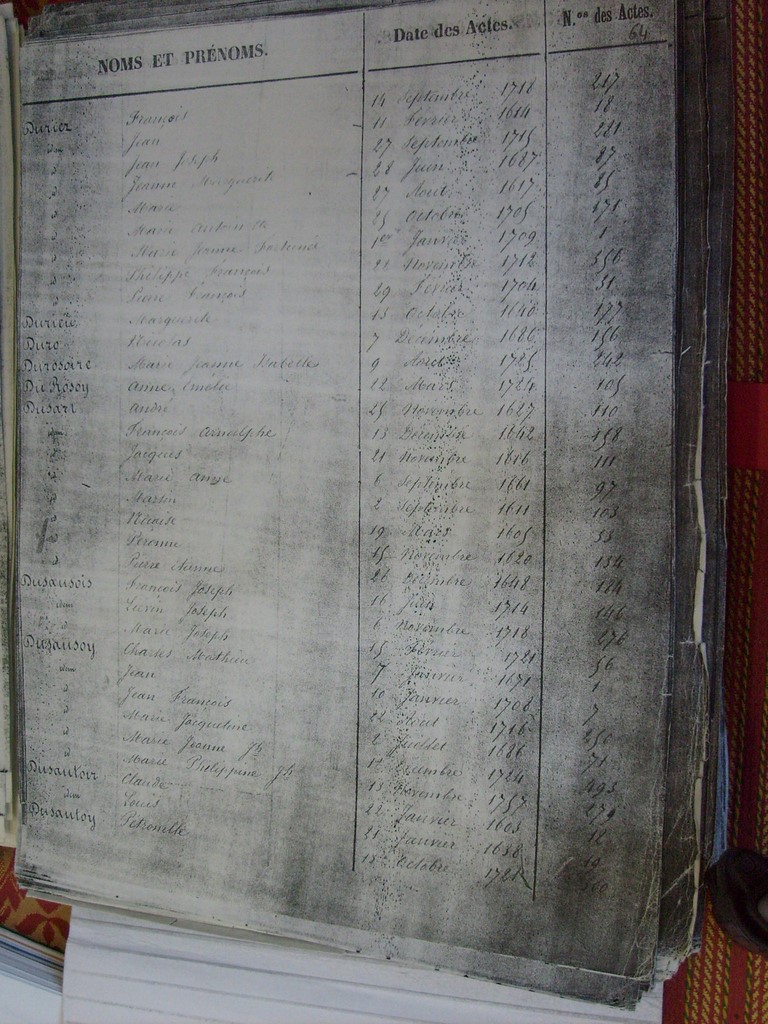 NOMS ET PRÉNOMS. Date des Actes. N.os des Actes.
64
Duriez François 14 Septembre 1718 217
idem Jean 11 Février 1614 18
d Jean Joseph 27 Septembre 1715 221
d Jeanne Marguerite 28 Juin 1687 87
d Marie 27 Août 1617 85
d Marie Antoinette 25 Octobre 1705 171
d Marie Jeanne Fortunée 1er Janvier 1709 1
d Philippe François 22 Novembre 1712 356
d Pierre François 29 Février 1704 31
Durieu Marguerite 13 Octobre 1640 177
Duro Nicolas 7 Décembre 1686 156
Durosoire Marie Jeanne Isabelle 9 Août 1725 242
Du Rosoy Anne Emélie 12 Mars 1724 105
Dusart André 25 Novembre 1627 110
idem François Arnolphe 13 Décembre 1642 158
d Jacques 21 Novembre 1616 111
d Marie Anne 6 Septembre 1661 97
d Martin 2 Septembre 1611 103
d Nicaise 19 Mars 1605 33
d Péronne 15 Novembre 1620 134
d Pierre Etienne 26 Décembre 1648 124
Dusausois François Joseph 16 Juin 1714 146
idem Lievin Joseph 6 Novembre 1718 276
d Marie Joseph 15 Février 1721 56
Dusausoy Charles Mathieu 7 Janvier 1671 1
idem Jean 10 Janvier 1708 7
d Jean François 22 Août 1716 250
d Marie Jacqueline 2 Juillet 1686 71
d Marie Jeanne Jh 12 Décembre 1724 493
d Marie Philippine Jh 13 Novembre 1757 279
Dusautoir Claude 22 Janvier 1603 12
idem Louis 21 Janvier 1638 19
Dusautoy Pétronille 15 Octobre 1721